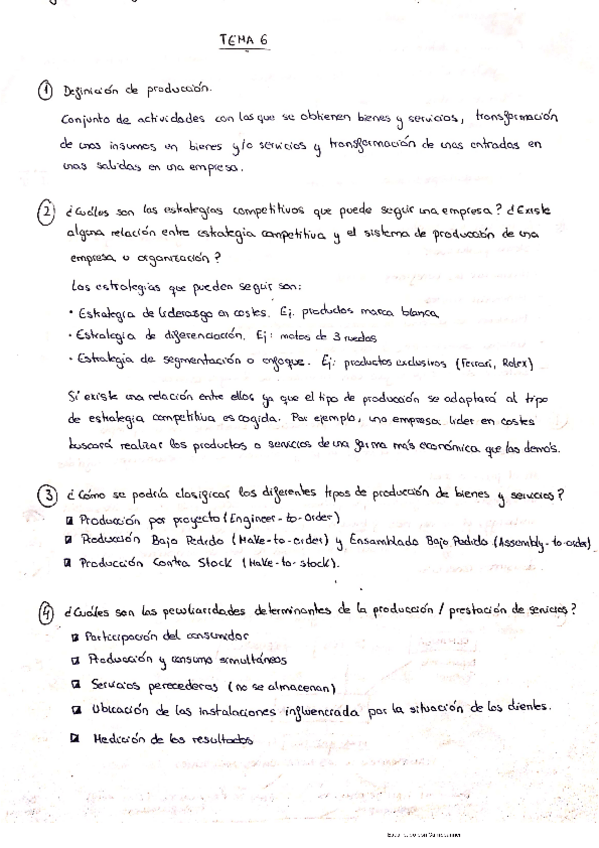 TEMA 6
① Definición de producción.
Conjunto de actividades con las que se obtienen bienes y servicios, transformación
de unos insumos en bienes y/o servicios y transformación de unas entradas en
unas salidas en una empresa.
② ¿Cuáles son las estrategias competitivas que puede seguir una empresa? ¿Existe
alguna relación entre estrategia competitiva y el sistema de producción de una
empresa u organización?
Las estrategias que pueden seguir son:
• Estrategia de liderazgo en costes. Ej. productos marca blanca
• Estrategia de diferenciación. Ej: motos de 3 ruedas
• Estrategia de segmentación o enfoque. Ej: productos exclusivos (Ferrari, Rolex)
Sí existe una relación entre ellos ya que el tipo de producción se adaptará al tipo
de estrategia competitiva escogida. Por ejemplo, una empresa líder en costes
buscará realizar los productos o servicios de una forma más económica que los demás.
③ ¿Cómo se podría clasificar los diferentes tipos de producción de bienes y servicios?
Producción por proyecto (Engineer-to-Order)
Producción Bajo Pedido (Make-to-order) y Ensamblado Bajo Pedido (Assembly-to-order)
Producción Contra Stock (Make-to-stock).
④ ¿Cuáles son las peculiaridades determinantes de la producción / prestación de servicios?
Participación del consumidor
Producción y consumo simultáneos
Servicios perecederos (no se almacenan)
Ubicación de las instalaciones influenciada por la situación de los clientes.
Medición de los resultados